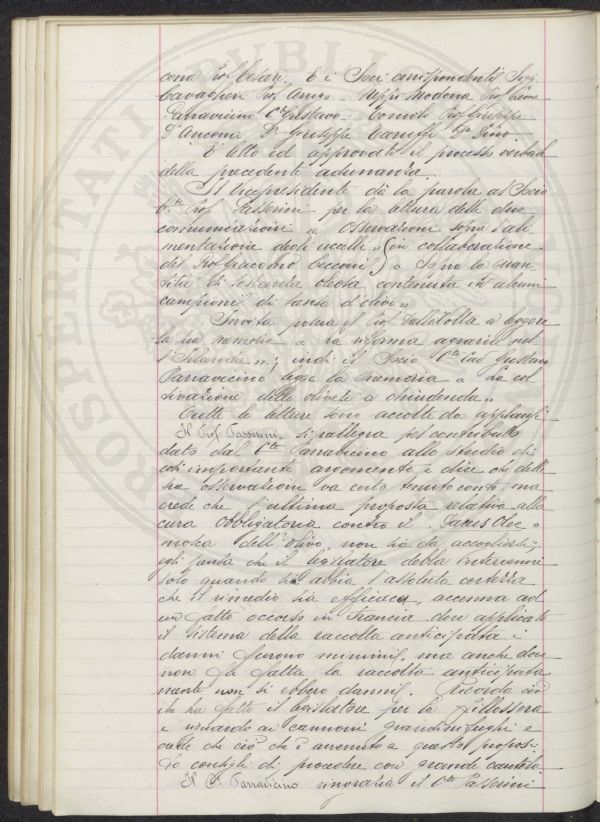 cono Prof Cesare. E i Soci corrispondenti Sigg.
Cavaglieri Prof Arrigo. Neppi Modona Prof Leone
Parravicini Cte Gustavo. Tonnolo Prof Giuseppe
D'Ancona Dr Giuseppe Dr Dino
E' letto ed approvato il processo verbale
della precedente adunanza.
Il Vicepresidente dà la parola al Socio
Cte Prof Passerini per la lettura delle due
comunicazioni « Osservazioni sopra l'ali
mentazione degli uccelli » (in collaborazione
del Prof Giacomo Cecconi) « Sopra la quan
tità di sostanza oleosa contenuta in alcuni
campioni di sansa d'olive »
Invita poscia il Prof Dalla Volta a leggere
la sua memoria « La riforma agraria nel
l'Irlanda »; indi il Socio Cte Cav Gustavo
Parravicino legge la memoria « La col
tivazione delle olivete a chiudenda »
Tutte le letture sono accolte da applausi
Il Prof. Passerini si rallegra pel contributo
dato dal Cte Parravicino allo studio di
così importante argomento e dice che delle
sue osservazioni va certo tenuto conto ma
crede che l'ultima proposta relativa alla
cura obbligatoria contro il Dacus Oleo o
mosca dell'olivo non sia da accogliersi;
egli pensa che il legislatore debba intervenire
solo quando si abbia l'assoluta certezza
che il rimedio sia efficace, accenna ad
un fatto occorso in Francia dove applicato
il sistema della raccolta anticipata i
danni furono minimi, ma anche dove
non fu fatta la raccolta anticipata
mente non si ebbero danni. Ricorda ciò
che ha fatto il legislatore per la fillossera
e venendo ai cannoni grandinifughi e
crede che ciò che è avvenuto a questo proposi
to consigli di procedere con grande cautela.
Il Cte Parravicino ringrazia il Cte Passerini